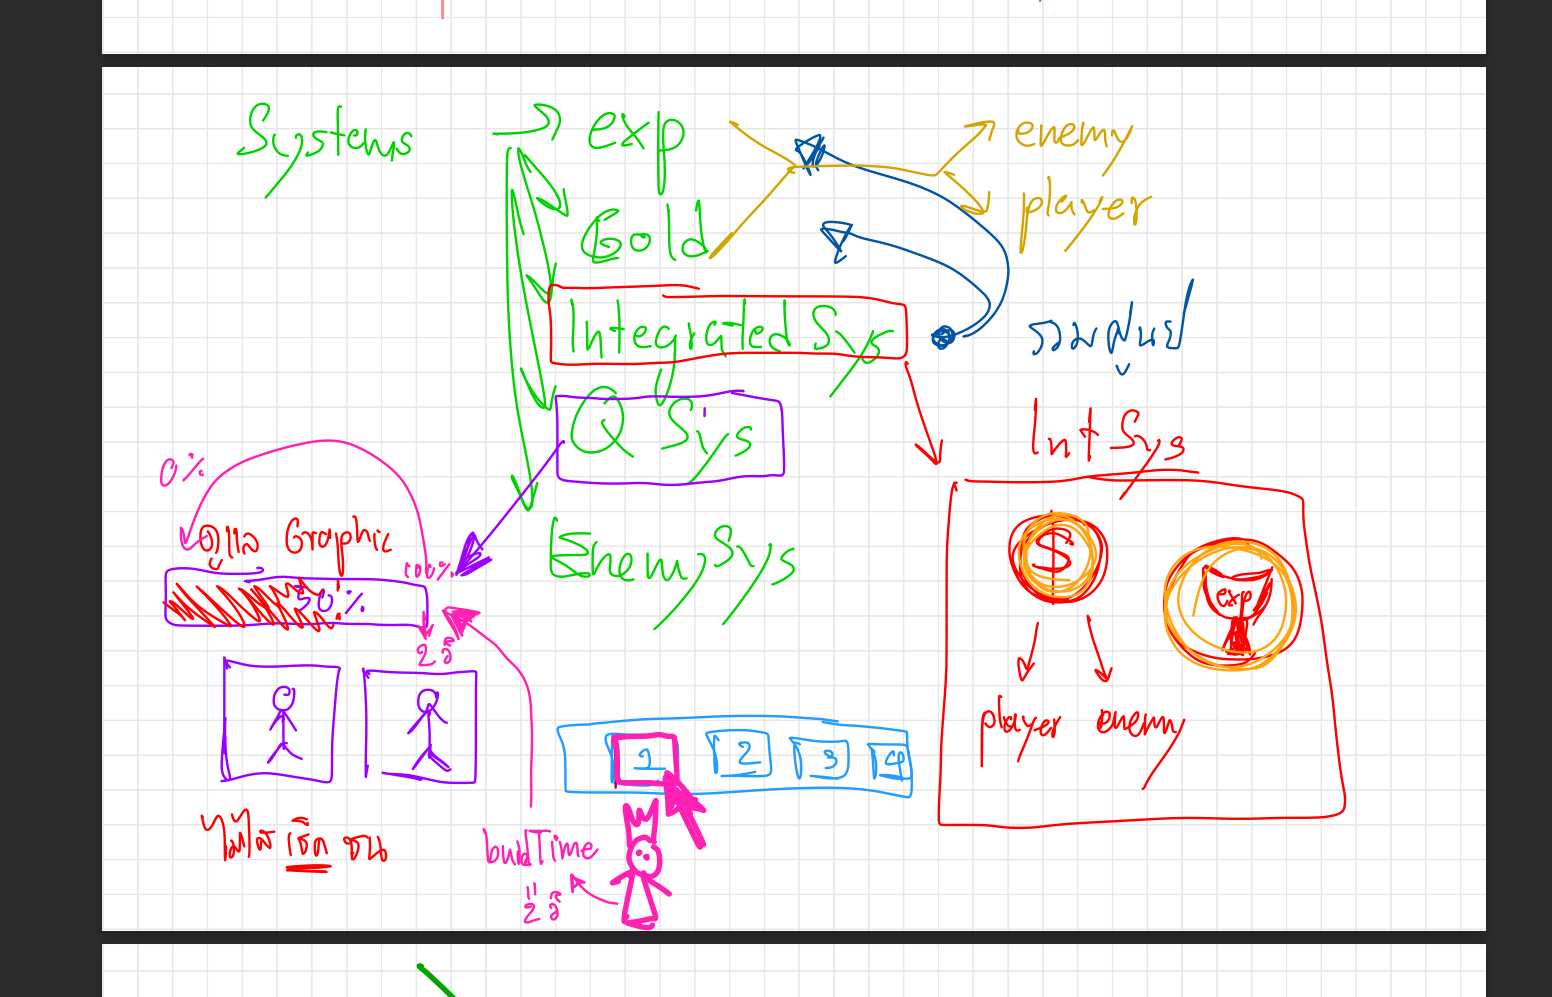 Systems
exp
Gold
Integrated Sys
Q Sys
Enemy Sys
enemy
player
รวมศูนย์
Int Sys
$
exp
player enemy
0%
ดูแล Graphic
100%
30%
2 วิ
1 2 3 4
buildTime
= 2 วิ
ไม่ได้ เช็ค ชน